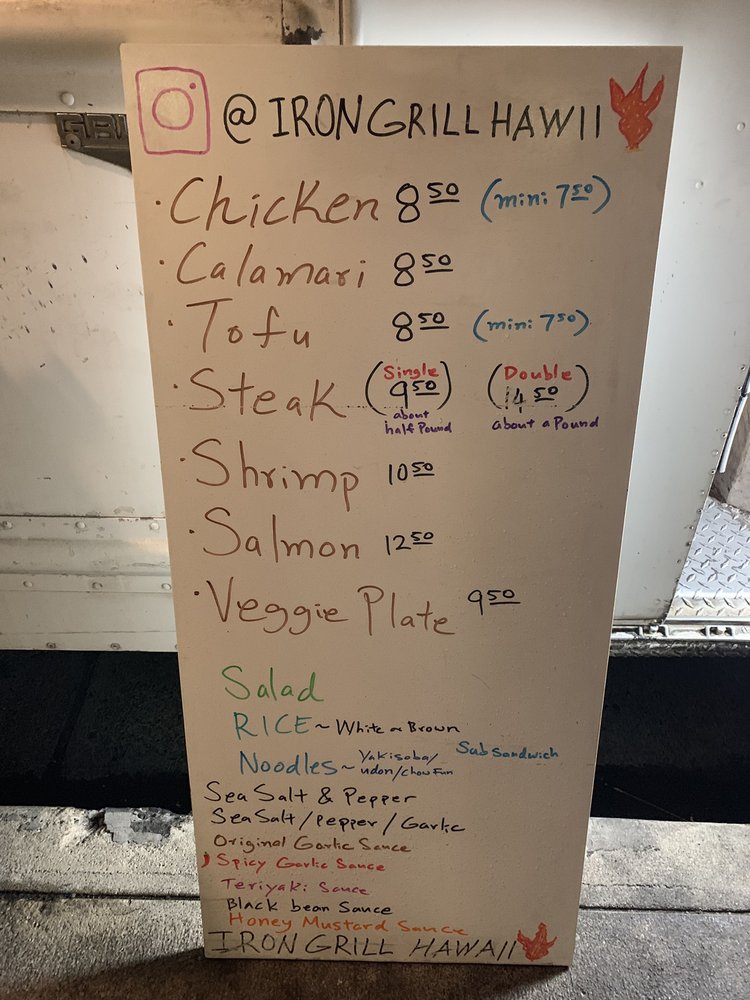 @IRONGRILLHAWII
· Chicken 8 50 (mini 7 50)
· Calamari 8 50
· Tofu 8 50 (mini 7 50)
· Steak (Single 9 50) (Double 14 50)
about half Pound about a Pound
· Shrimp 10 50
· Salmon 12 50
· Veggie Plate 9 50
Salad
RICE ~ White or Brown
Noodles ~ Yakisoba/ udon/Chow Fun Sub Sandwich
Sea Salt & Pepper
Sea Salt/Pepper/Garlic
Original Garlic Sauce
Spicy Garlic Sauce
Teriyaki Sauce
Black bean Sauce
Honey Mustard Sauce
IRON GRILL HAWAII